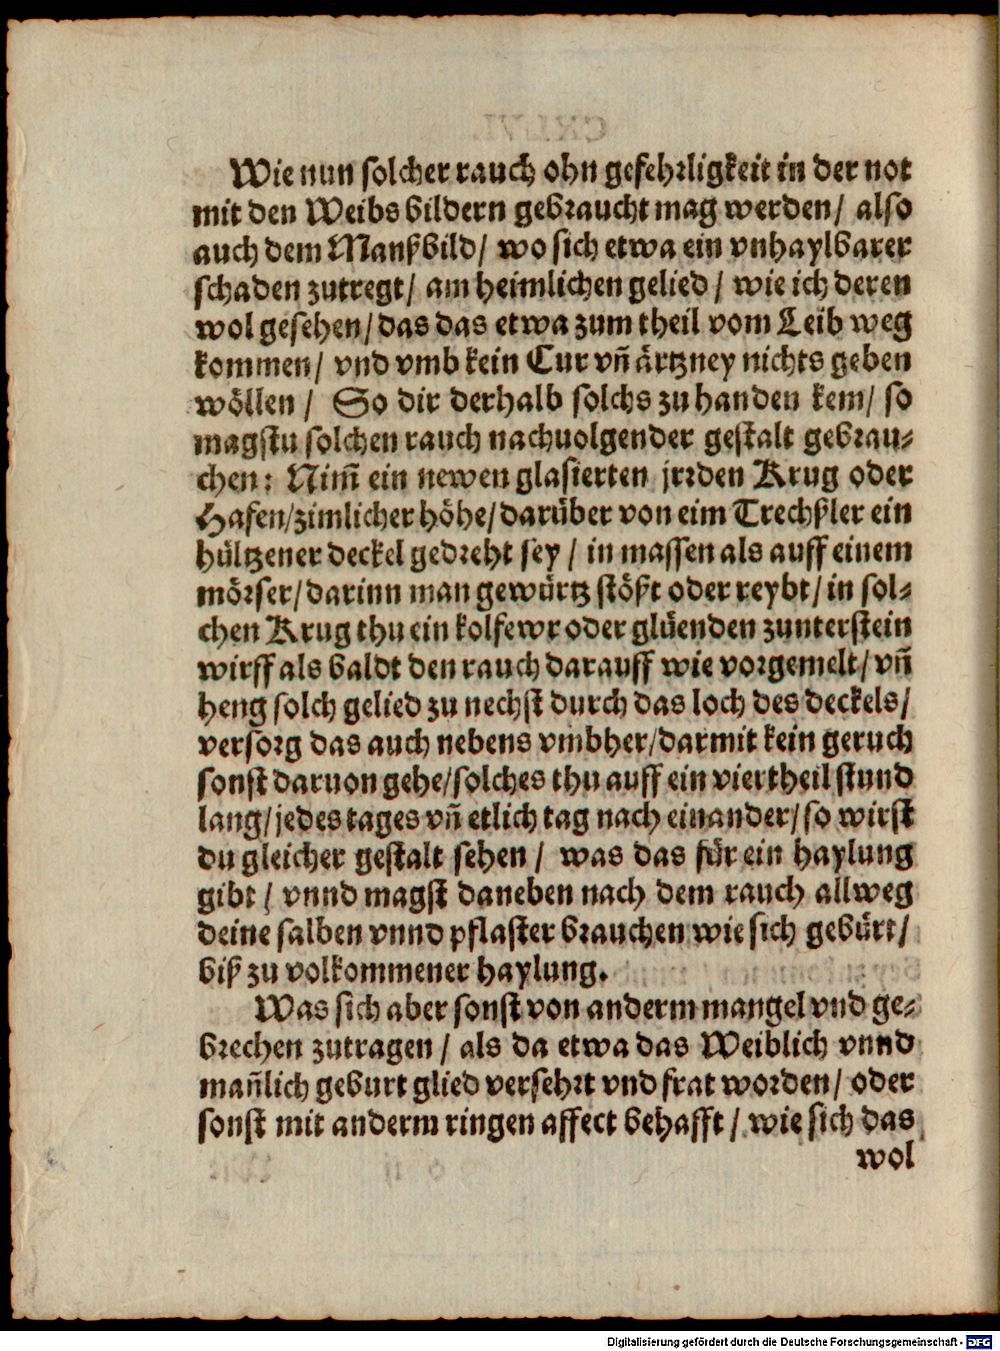 Wie nun solcher rauch ohn gefehrligkeit in der not
mit den Weibs bildern gebraucht mag werden/ also
auch dem Manßbild/ wo sich etwa ein vnhaylbarer
schaden zutregt/ am heimlichen gelied/ wie ich deren
wol gesehen/ das das etwa zum theil vom Leib weg
kommen/ vnd vmb kein Cur vñ ärtzney nichts geben
wöllen/ So dir derhalb solchs zu handen kem/ so
magstu solchen rauch nachuolgender gestalt gebrau-
chen: Nim̃ ein newen glasierten jrrden Krug oder
Hafen/ zimlicher höhe/ darüber von eim Trechßler ein
hültzener deckel gedreht sey/ in massen als auff einem
mörser/ darinn man gewürtz stößt oder reybt/ in sol-
chen Krug thu ein kolfewr oder glüenden zunterstein
wirff als baldt den rauch darauff wie vorgemelt/ vñ
heng solch gelied zu nechst durch das loch des deckels/
versorg das auch nebens vmbher/ darmit kein geruch
sonst daruon gehe/ solches thu auff ein viertheil stund
lang/ jedes tages vñ etlich tag nach einander/ so wirst
du gleicher gestalt sehen/ was das für ein haylung
gibt/ vnnd magst daneben nach dem rauch allweg
deine salben vnnd pflaster brauchen wie sich gebürt/
biß zu volkommener haylung.
Was sich aber sonst von anderm mangel vnd ge-
brechen zutragen/ als da etwa das Weiblich vnnd
mañlich geburt glied versehrt vnd frat worden/ oder
sonst mit anderm ringen affect behafft/ wie sich das
wol
Digitalisierung gefördert durch die Deutsche Forschungsgemeinschaft - DFG